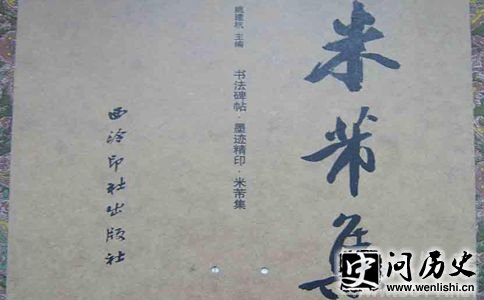 米芾集
姚建杭 主编
书法碑帖·墨迹精印·米芾集
西泠印社出版社
问历史
www.wenlishi.cn